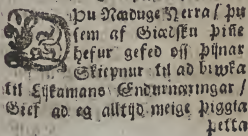 Þu Næduge Herra/ þu
sem af Giædsku þiñe
hefur gefed oss þijnar
Skiepnur til ad bruka
til Lijkamans Endurnæringar/
Gief ad eg alltijd meige þiggia
þetta